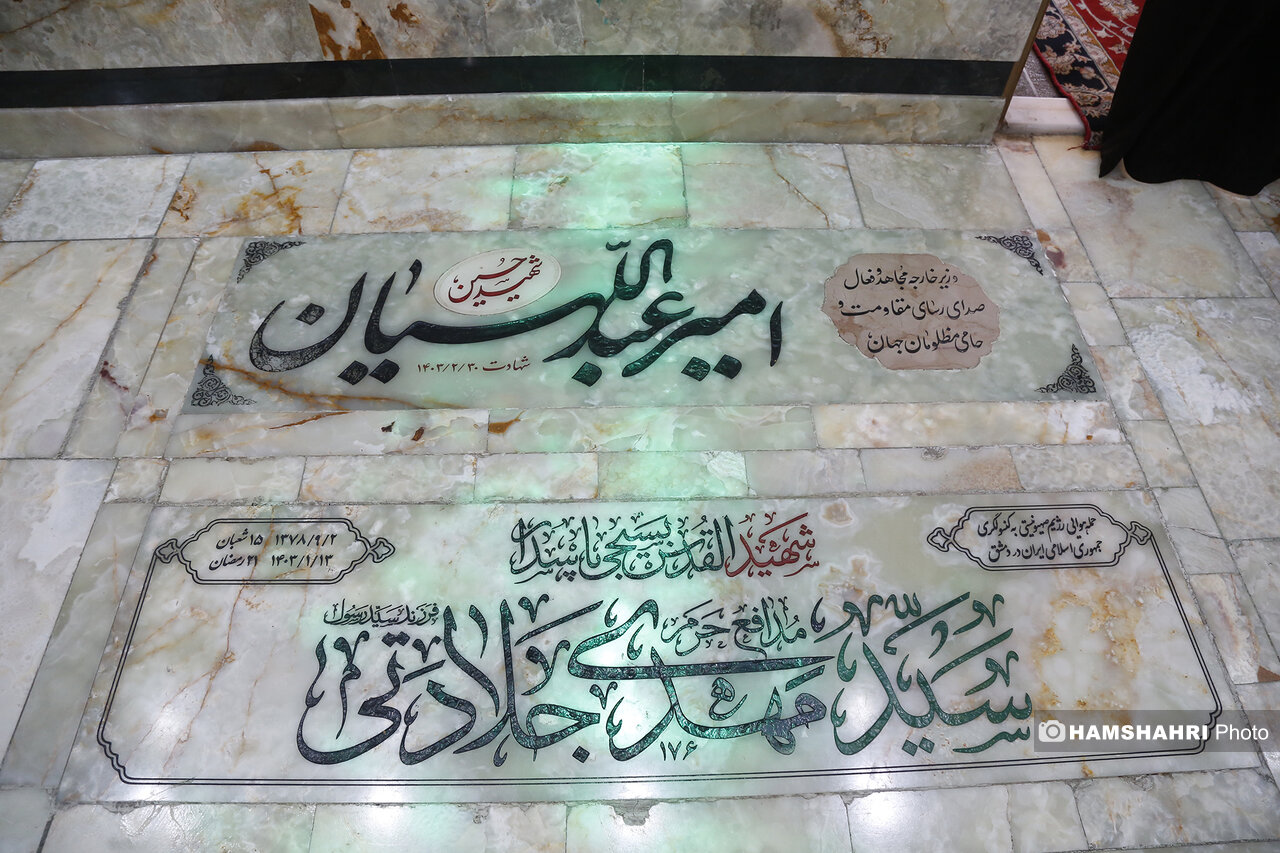 وزیر خارجه مجاهد و فعال
صدای رسای مقاومت و
حامی مظلومان جهان
شهید حسین
امیرعبداللهیان
شهادت ۱۴۰۳/۲/۳۰
حمله هوایی رژیم صهیونیستی به کنسولگری
جمهوری اسلامی ایران در دمشق
شهید القدس بسیجی پاسدار
۱۳۷۸/۹/۲ ۱۵ شعبان
۱۴۰۳/۱/۱۳ ۲۲ رمضان
مدافع حرم
سید مهدی جلادتی
فرزند سید رسول
۱۷۶
HAMSHAHRI Photo